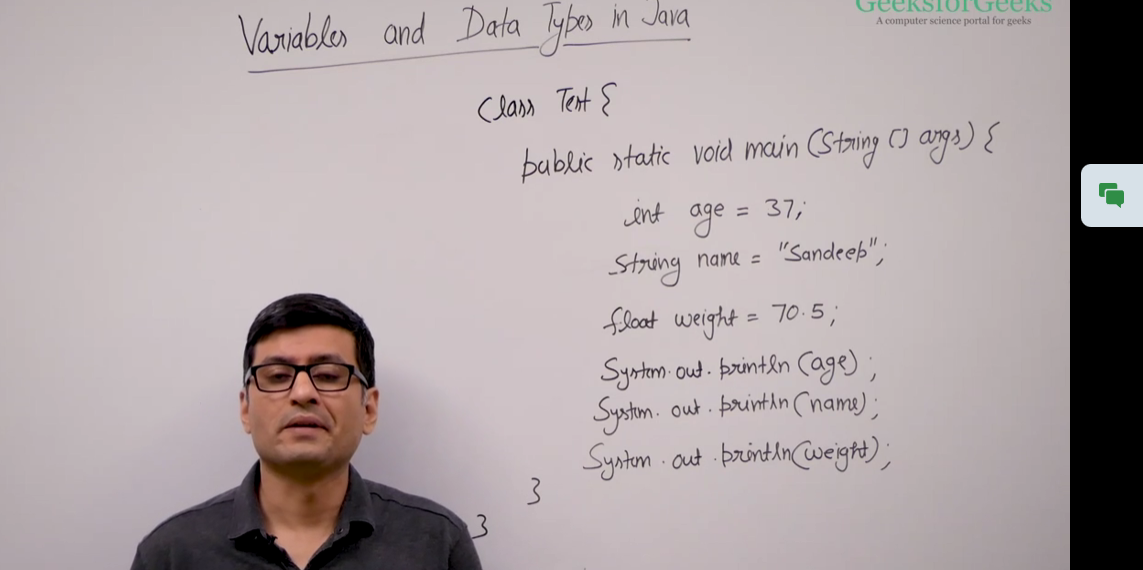 GeeksforGeeks
A computer science portal for geeks
Variables and Data Types in Java
Class Test {
public static void main (String [] args) {
int age = 37;
String name = "Sandeep";
float weight = 70.5;
System.out.println (age) ;
System.out.println (name);
System.out.println(weight);
}
}